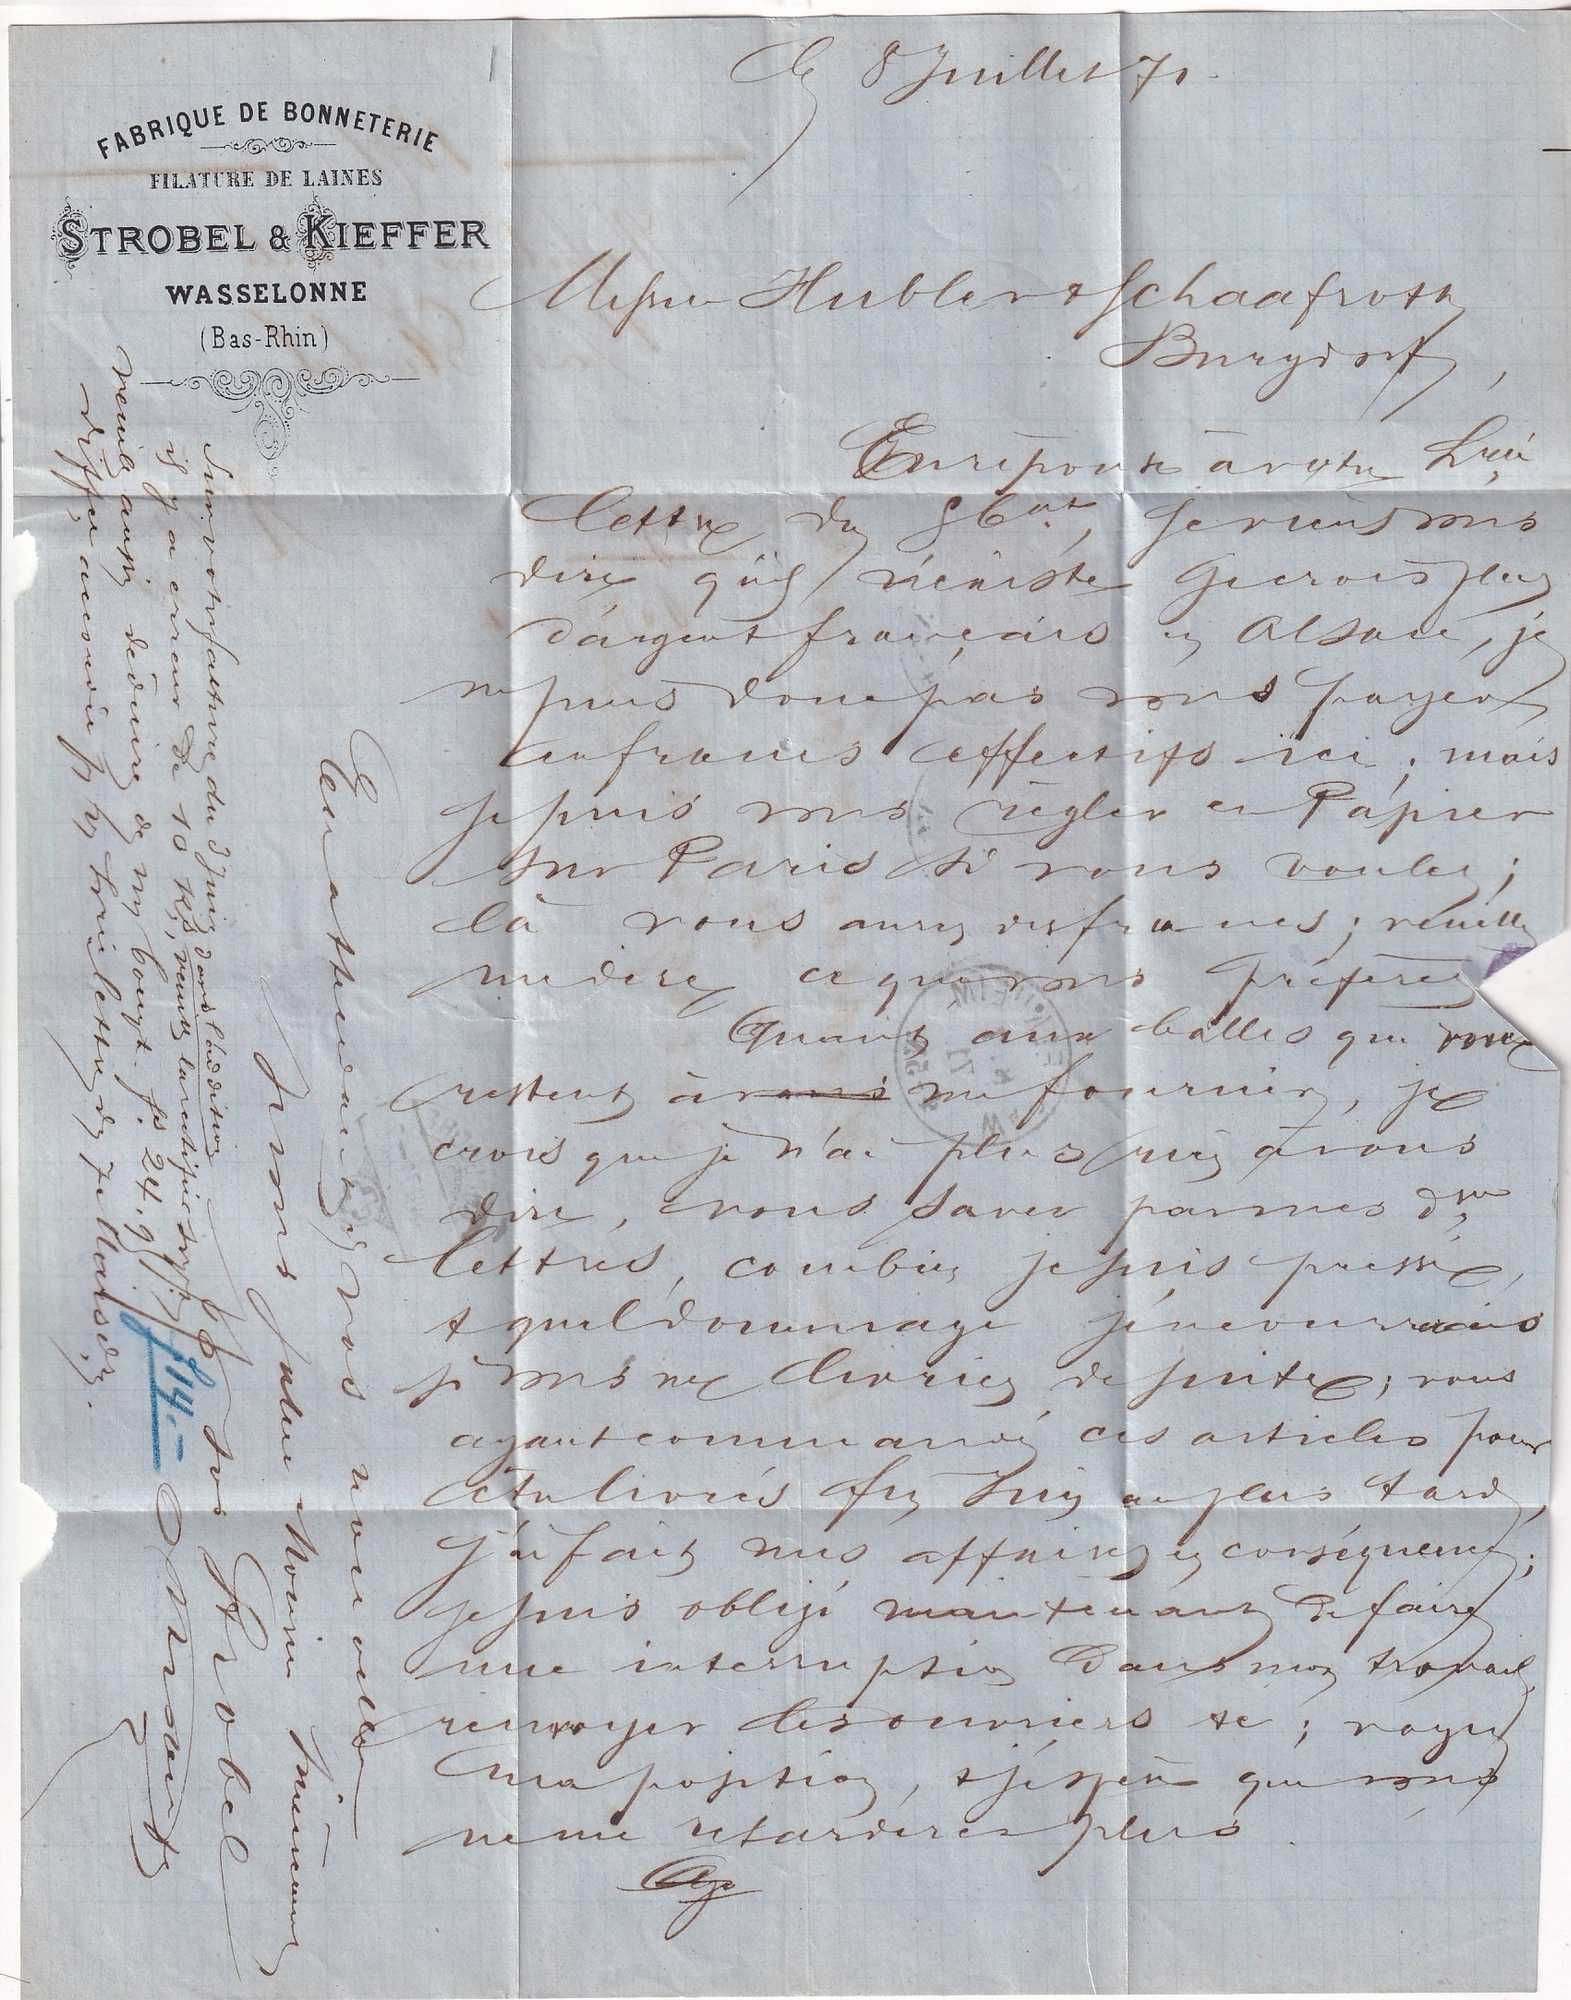 FABRIQUE DE BONNETERIE
FILATURE DE LAINES
STROBEL & KIEFFER
WASSELONNE
(Bas-Rhin)
le 8 Juillet 71.
Messieurs Hubler & Schaafroth
Burgdorf,
En réponse à votre
lettre du 8 ct, je viens vous
dire qu'il n'existe je crois plus
d'argent français en Alsace, je
ne puis donc pas vous payer
en francs effectifs ici; mais
je puis vous régler en Papier
sur Paris si vous voulez;
là vous aurez des francs; veuillez
me dire ce que vous préférez
Quant aux balles qui
restent à vous me fournir, je
crois que je n'ai plus rien à vous
dire, vous savez par mes
lettres, combien je suis pressé,
& quel dommage j'encourrais
si vous ne livriez de suite; vous
ayant commandé ces articles pour
être livrés fin Juin au plus tard,
j'ai fait mes affaires en conséquence;
je suis obligé maintenant de faire
une interruption dans mon travail,
renvoyer des ouvriers &c; voyez
ma position, & j'espère que vous
ne me retarderez plus.
En attendant de vos nouvelles
je vous salue Monsieur sincèrement
pp Jos Strobel
Sur votre facture du 3 Juin dans l'addition
il y a erreur de 10 K°, veuillez la rectifier svp
veuillez aussi déduire de mon compt. fs 24.9
différence d'escompte sur lettre de
f 14.-